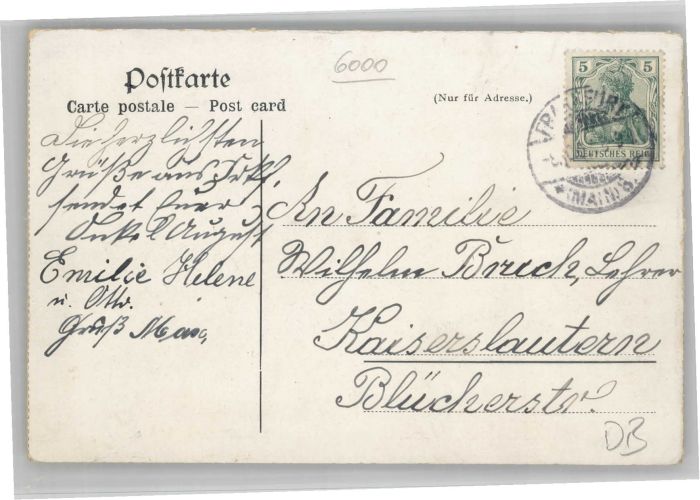 6000
Postkarte
Carte postale — Post card
(Nur für Adresse.)
5 5
DEUTSCHES REICH
FRANKFURT
* (MAIN) 9.
Die herzlichsten
Grüße aus Frkf.
sendet Euer
Onkel August
Emilie Helene
u. Otto.
Gruß Max
An Familie
Wilhelm Bruch, Lehrer
Kaiserslautern
Blücherstr.
DB